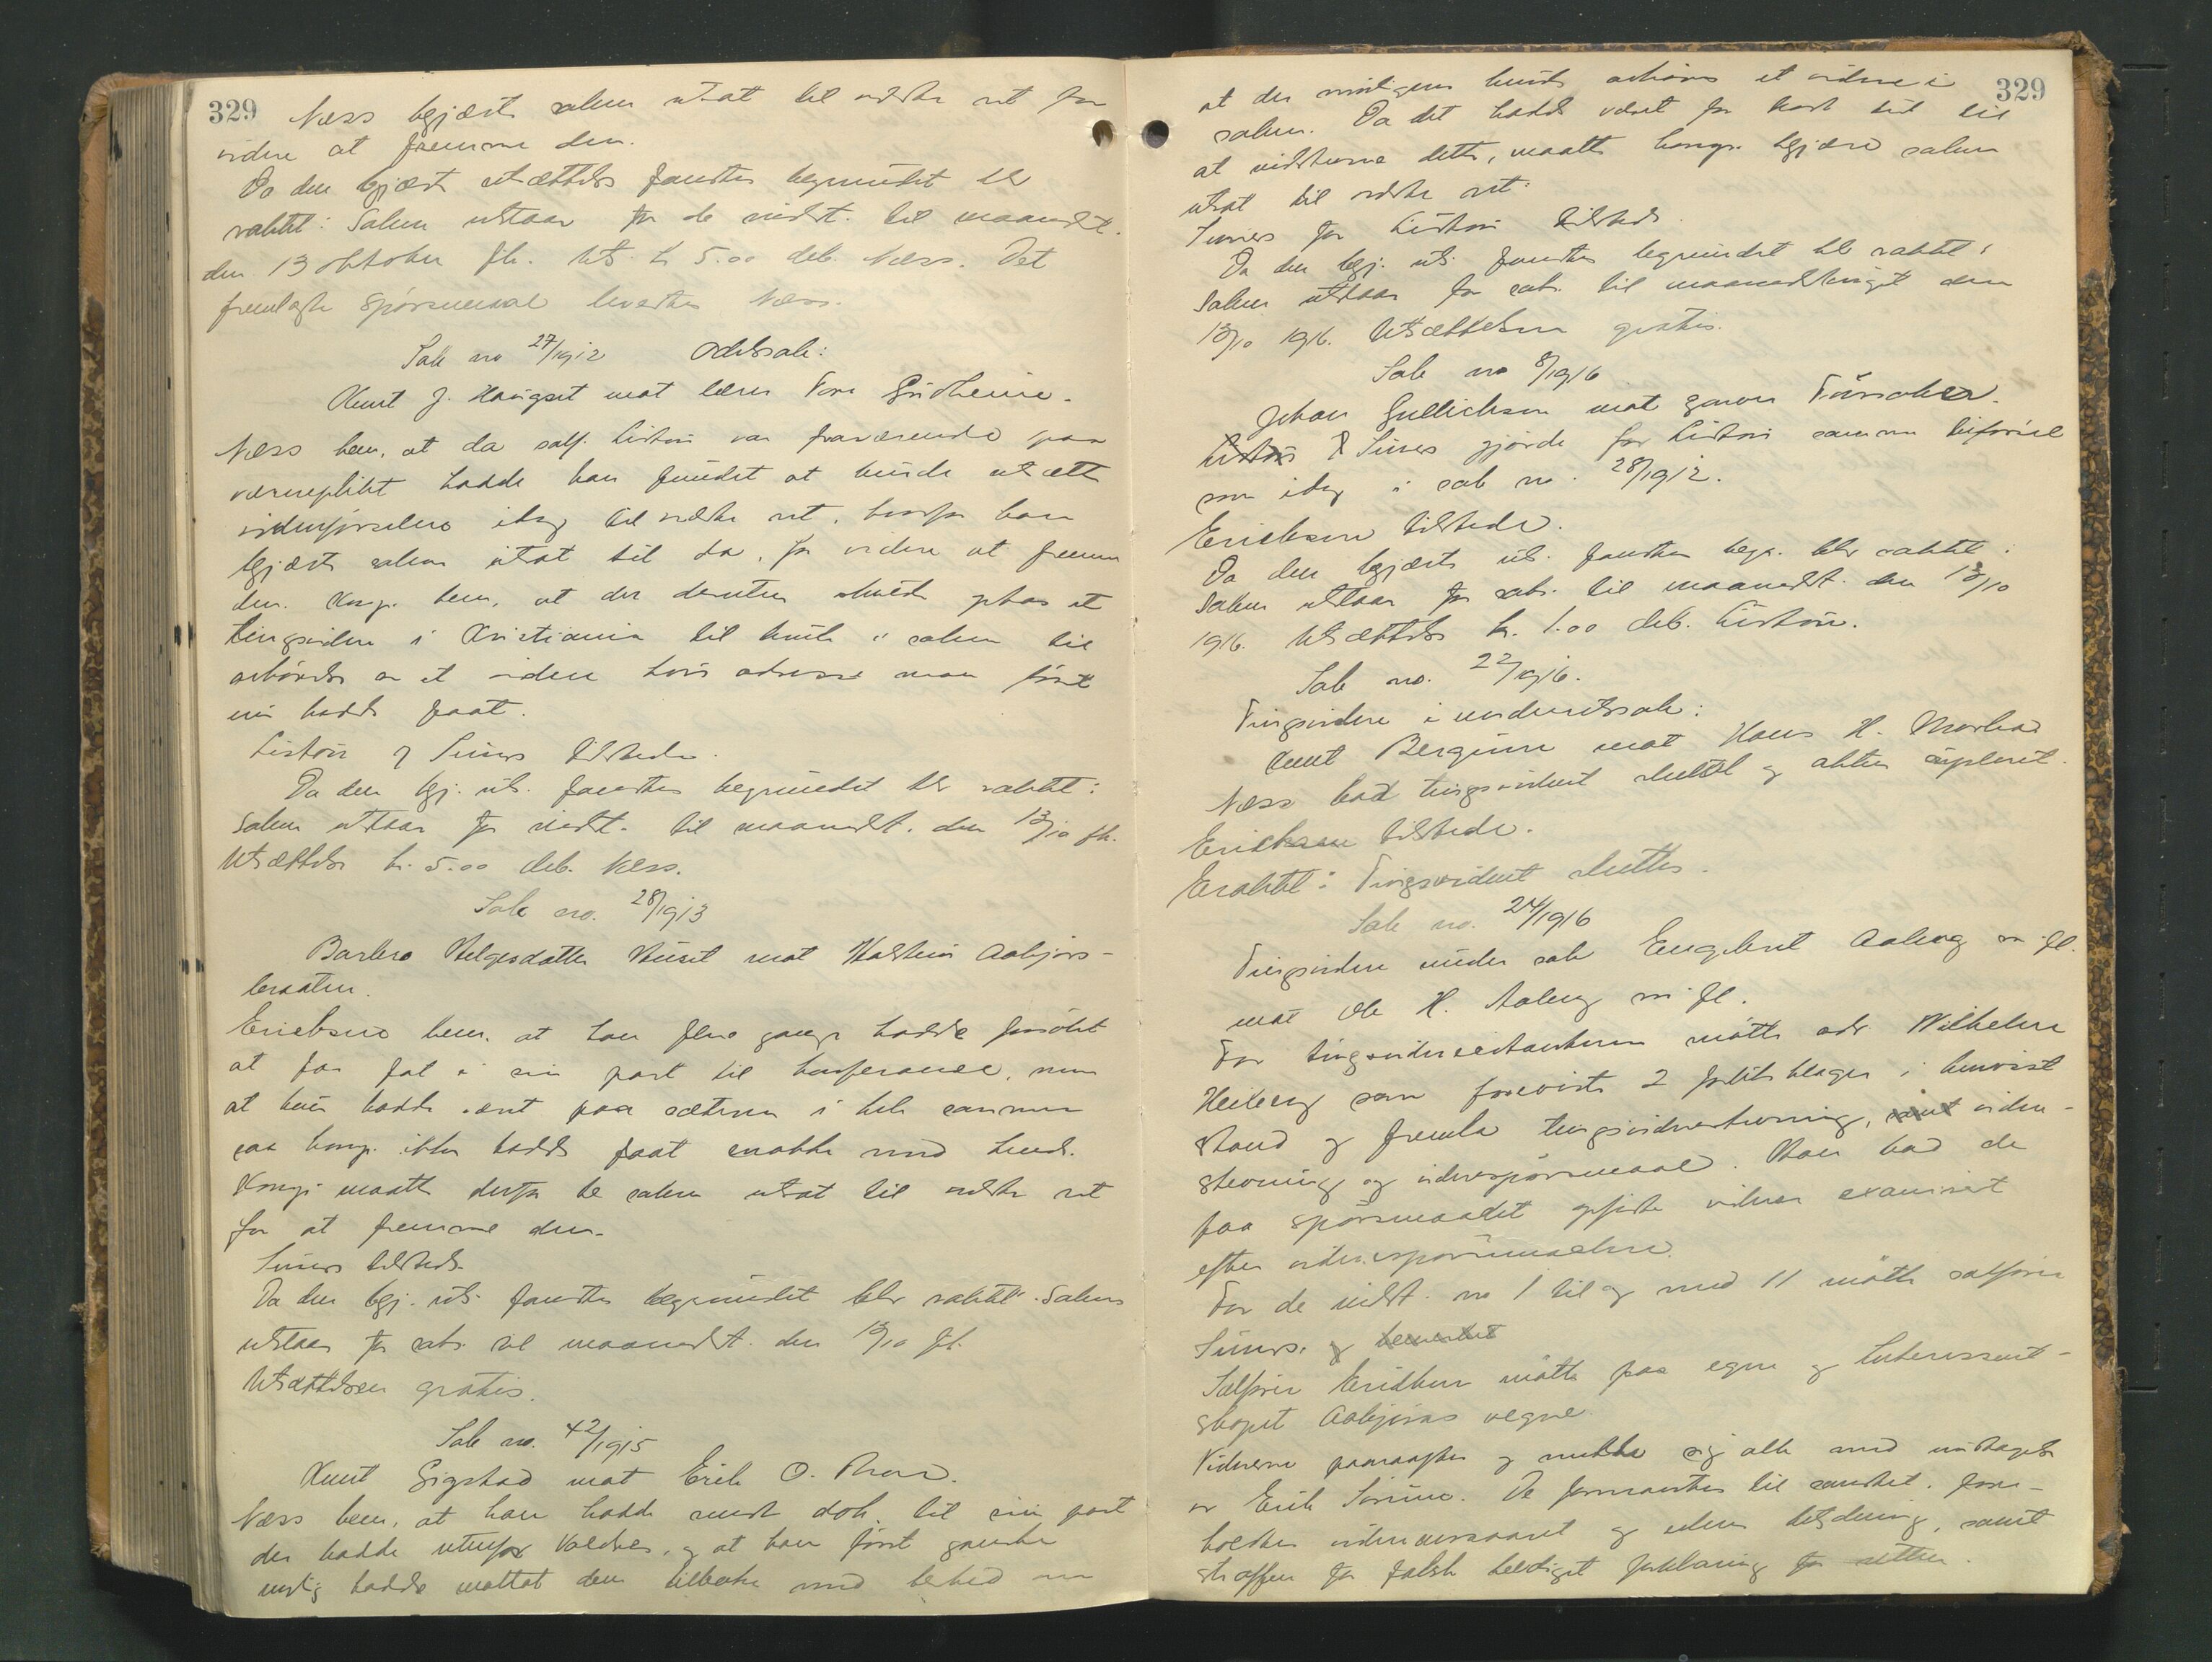 329
Næss begjærte saken utsat til næste ret for
videre at fremme den.
Da den begjærte utsættelse fandtes begrundet blev
vedtat: Saken utstaar for de indst. til maanedst.
den 13 oktober fk. Uts. kr 5.00 deb. Næss. Det
fremlagte spörsmaal leveredes Næss.
Sak no 27/1912 Odelssak:
Knut J. Haugset mot lærer Tore Gudheim.
Næss bem. at da sakf. Liston var fraværende paa
værneplikt hadde han fundet at burde utsætte
vidneförselen idag til næste ret, hvorfor han
begjærte saken utsat til da, for videre at fremme
den. Komp. bem. at der desuten skulde optas et
tingsvidne i Kristiania til bruk i saken til
avhörelse av et vidne hvis adresse man först
nu hadde faat.
Liston v/ Sunes tilstede.
Da den begj. uts. fandtes begrundet blev vedtat:
Saken utstaar for indst. til maanedst. den 13/10 fk.
Utsættelse kr. 5.00 deb. Næss.
Sak no. 28/1913
Barbro Helgesdatter mot Halstein Aabjörs-
braaten.
Ericksen bem. at han flere gange hadde forsökt
at faa fat i sin part til konferanse, men
at hun hadde været paa sæteren i hele sommer
saa komp. ikke hadde faat snakke med hende.
Komp. maatte derfor be saken utsat til næste ret
for at fremme den.
Sunes tilstede.
Da den begj. uts. fandtes begrundet blev vedtat: Saken
utstaar for sabs. til maanedst. den 13/10 fk.
Utsættelsen gratis.
Sak no. 42/1915
Knut Gigstad mot Erik O.
Næss bem. at han hadde sendt dok. til sin part
der hadde utenfor Valdres, og at han först ganske
nylig hadde mottat dem tilbake med beskjed om
329
at der muligens burde avhöres et vidne i
saken. Da det hadde været for kort tid til
at indstevne dette, maatte komp. begjære saken
utsat til næste ret.
Sunes for Liston tilstede.
Da den begj. uts. fandtes begrundet blev vedtat:
Saken utstaar for sabs. til maanedstinget den
13/10 1916. Utsættelsen gratis.
Sak no 8/1916
Johan Gullicksen mot garver
Liston v/ Sunes gjorde for Liston samme tilförsel
som idag i sak no. 28/1912.
Ericksen tilstede.
Da den begjærte uts. fandtes begr. blev vedtat:
Saken utstaar for sabs. til maanedst. den 13/10
1916. Utsættelse kr. 1.00 deb. Liston.
Sak no. 22/1916.
Tingsvidne i underretssak:
Knut Bergum mot Hans H.
Næss bad tingsvidnet sluttet og akten utskrevet.
Ericksen tilstede.
Eraktet: Tingsvidnet sluttes.
Sak no. 24/1916
Tingsvidne under sak Engebret Aaberg m.fl.
mot Ole H. Aaberg m.fl.
For tingsvidnecitantene mötte adv. Wilhelm
Heiberg som foreviste 2 forliksklager i henvist
stand og fremla tingsvidnestevning, samt vidne-
stevning og vidnespörsmaal. Han bad de
paa spörsmaalet opförte vidner examinert
efter vidnespörsmaalene.
For de indst. no 1 til og med 11 mötte sakförer
Sunes. og bemerket
Sakförer Ericksen mötte paa egne og Interessent-
skapet Aabjöras vegne.
Vidnerne paaraaptes og meldte sig alle med undtagelse
av Erik De formantes til sandhet, fore-
holdtes vidneansvaret og edens betydning, samt
straffen for falsk beediget forklaring for retten.